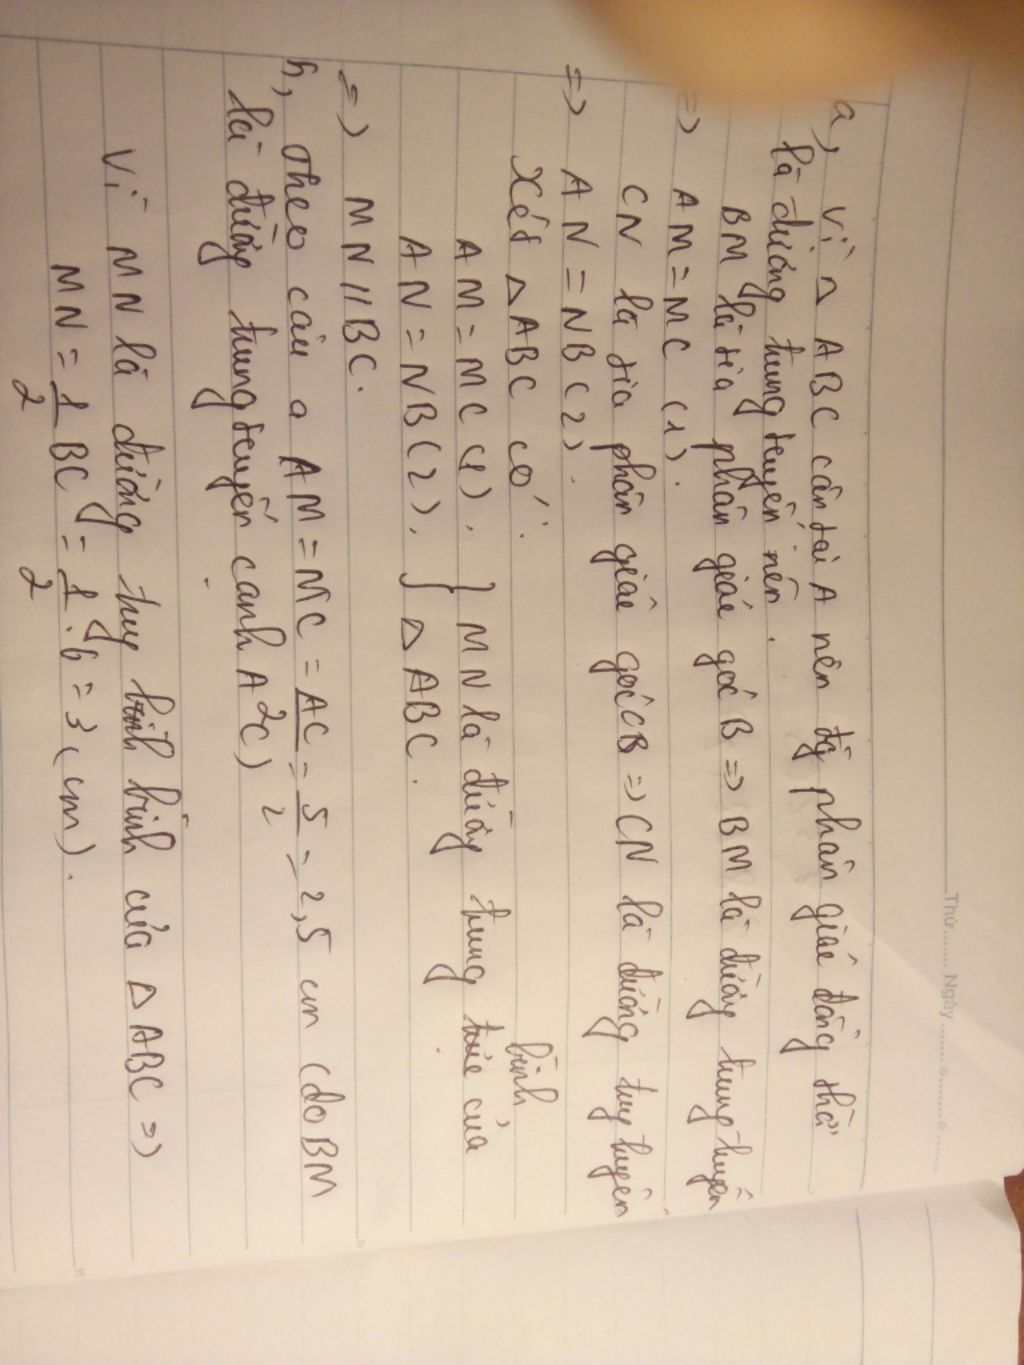 Thứ........ Ngày........
a, Vì △ ABC cân tại A nên đg phân giác đồng thời
là đường trung tuyến nên.
BM là tia phân giác góc B => BM là đường trung tuyến
=> AM = MC (1).
CN là tia phân giác góc CB => CN là đường tuy tuyến
=> AN = NB (2).
Xét △ ABC có:
AM = MC (1). } MN là đường trung bình của
AN = NB (2). } △ ABC.
=> MN // BC.
b, Theo câu a AM = MC = AC/2 = 5/2 = 2,5 cm (do BM
là đường trung tuyến cạnh AC)
Vì MN là đường tuy bình của △ ABC =>
MN = 1/2 BC = 1/2 . 6 = 3 (cm).